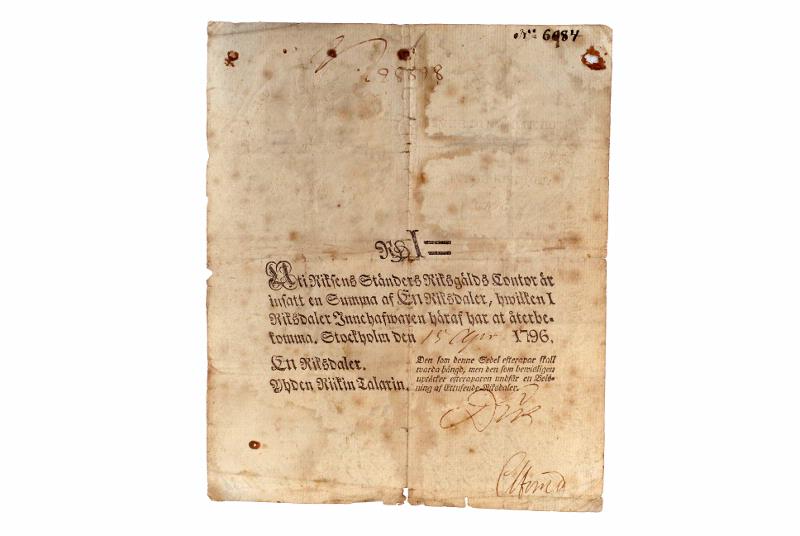 N:o 6984
RD 1 =
Uti Riksens Ständers Riksgälds Contor är
insatt en Summa af En Riksdaler, hwilken 1
Riksdaler Innehafwaren häraf har at återbe-
komma. Stockholm den 15 Apr 1796.
En Riksdaler.
Yhden Riikin Talarin.
Den som denne Sedel efterapar skall
warda hängd, men den som bewisligen
uptäcker efteraparen undfår en Belö-
ning af Ettusende Riksdaler.